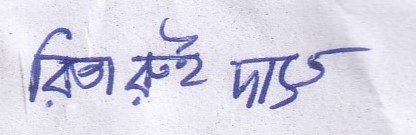 রিতা রুই দাস